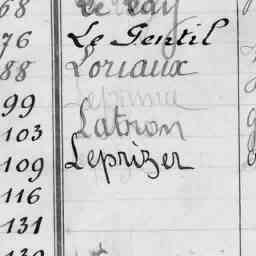 68 Le Lay
76 Le Gentil
88 Loriaux
99
103 Latron
109 Leprizer
116
131